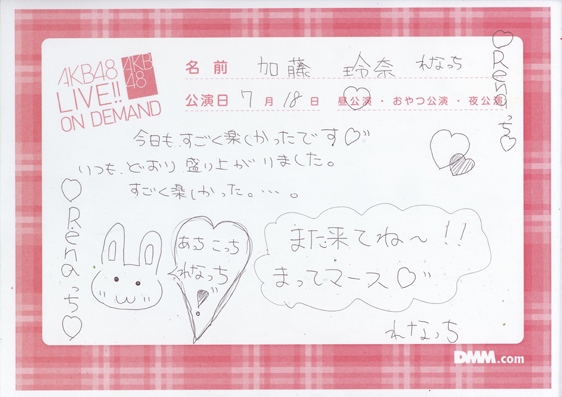 AKB48
LIVE!!
ON DEMAND
AKB
48
名前 加藤 玲奈 れなっち
公演日 7月18日 昼公演・おやつ公演・夜公演
♡Renaっち♡
今日も、すごく楽しかったです♡
いつも、どおり盛り上がりました。
すごく楽しかった。…。
♡Renaっち♡
あちこっち
れなっち
また来てね〜!!
まってマース♡
れなっち
DMM.com